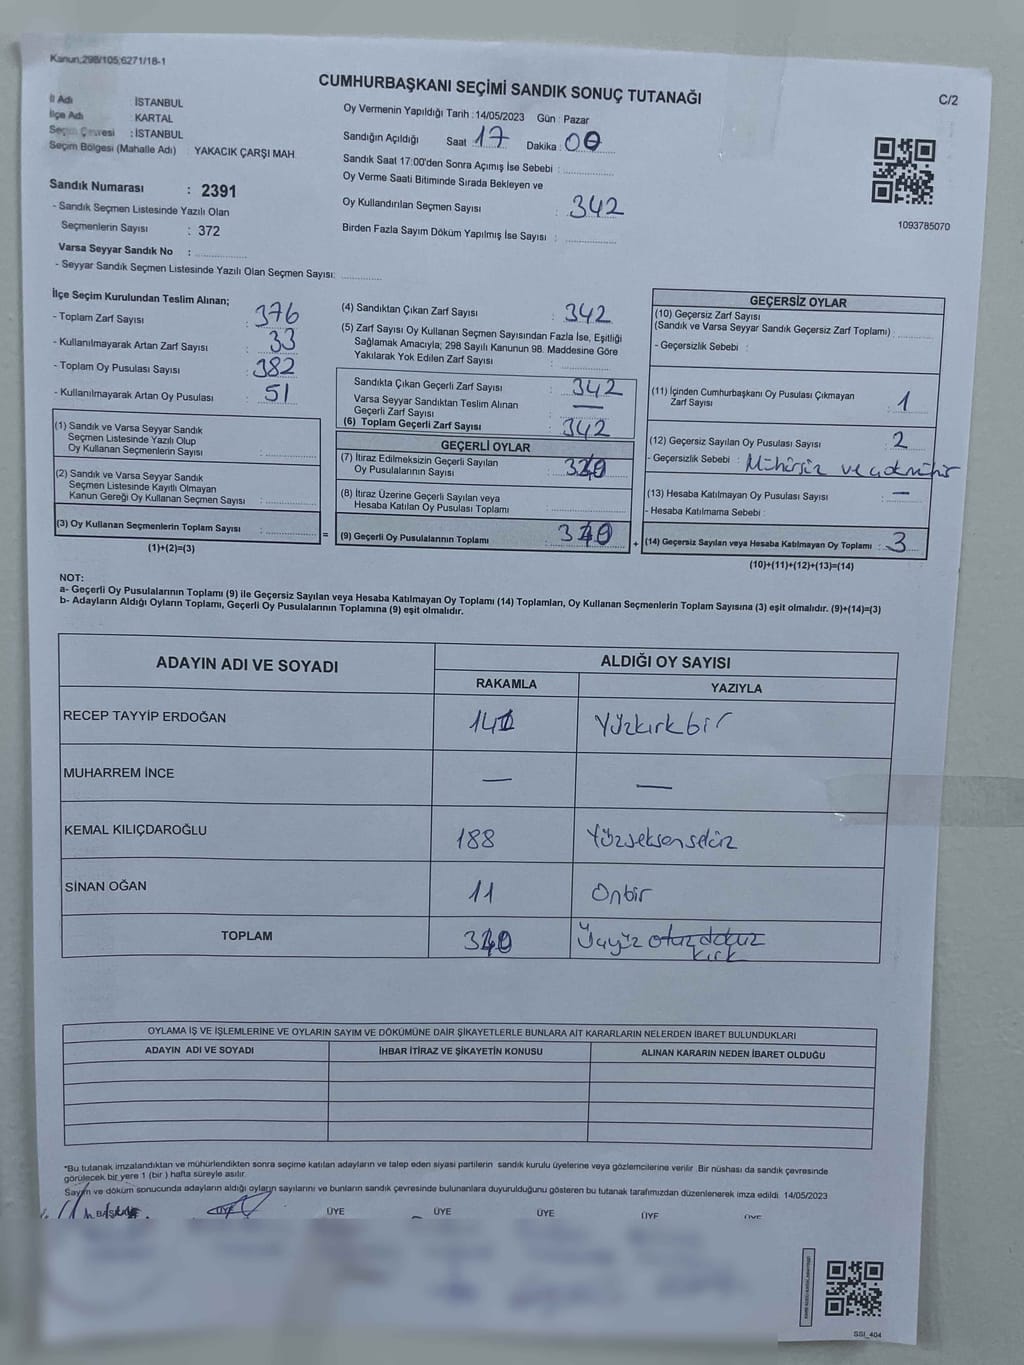 Kanun,298/105,6271/18-1
CUMHURBAŞKANI SEÇİMİ SANDIK SONUÇ TUTANAĞI
C/2
İl Adı : İSTANBUL
İlçe Adı : KARTAL
Seçim Çevresi : İSTANBUL
Seçim Bölgesi (Mahalle Adı) : YAKACIK ÇARŞI MAH.
Sandık Numarası : 2391
- Sandık Seçmen Listesinde Yazılı Olan
Seçmenlerin Sayısı : 372
Varsa Seyyar Sandık No :
- Seyyar Sandık Seçmen Listesinde Yazılı Olan Seçmen Sayısı:
Oy Vermenin Yapıldığı Tarih : 14/05/2023 Gün : Pazar
Sandığın Açıldığı Saat : 17 Dakika : 00
Sandık Saat 17:00'den Sonra Açımış İse Sebebi :
Oy Verme Saati Bitiminde Sırada Bekleyen ve
Oy Kullandırılan Seçmen Sayısı : 342
Birden Fazla Sayım Döküm Yapılmış İse Sayısı :
1093785070
İlçe Seçim Kurulundan Teslim Alınan;
- Toplam Zarf Sayısı : 376
- Kullanılmayarak Artan Zarf Sayısı : 33
- Toplam Oy Pusulası Sayısı : 382
- Kullanılmayarak Artan Oy Pusulası : 51
(1) Sandık ve Varsa Seyyar Sandık
Seçmen Listesinde Yazılı Olup
Oy Kullanan Seçmenlerin Sayısı :
(2) Sandık ve Varsa Seyyar Sandık
Seçmen Listesinde Kayıtlı Olmayan
Kanun Gereği Oy Kullanan Seçmen Sayısı :
(3) Oy Kullanan Seçmenlerin Toplam Sayısı :
(1)+(2)=(3)
=
(4) Sandıktan Çıkan Zarf Sayısı : 342
(5) Zarf Sayısı Oy Kullanan Seçmen Sayısından Fazla İse, Eşitliği
Sağlamak Amacıyla; 298 Sayılı Kanunun 98. Maddesine Göre
Yakılarak Yok Edilen Zarf Sayısı :
Sandıkta Çıkan Geçerli Zarf Sayısı : 342
Varsa Seyyar Sandıktan Teslim Alınan
Geçerli Zarf Sayısı : —
(6) Toplam Geçerli Zarf Sayısı : 342
GEÇERLİ OYLAR
(7) İtiraz Edilmeksizin Geçerli Sayılan
Oy Pusulalarının Sayısı : 340
(8) İtiraz Üzerine Geçerli Sayılan veya
Hesaba Katılan Oy Pusulası Toplamı :
(9) Geçerli Oy Pusulalarının Toplamı : 340
+
GEÇERSİZ OYLAR
(10) Geçersiz Zarf Sayısı
(Sandık ve Varsa Seyyar Sandık Geçersiz Zarf Toplamı) :
- Geçersizlik Sebebi :
(11) İçinden Cumhurbaşkanı Oy Pusulası Çıkmayan
Zarf Sayısı : 1
(12) Geçersiz Sayılan Oy Pusulası Sayısı : 2
- Geçersizlik Sebebi : Mühürsüz ve
(13) Hesaba Katılmayan Oy Pusulası Sayısı : —
- Hesaba Katılmama Sebebi :
(14) Geçersiz Sayılan veya Hesaba Katılmayan Oy Toplamı : 3
(10)+(11)+(12)+(13)=(14)
NOT:
a- Geçerli Oy Pusulalarının Toplamı (9) ile Geçersiz Sayılan veya Hesaba Katılmayan Oy Toplamı (14) Toplamları, Oy Kullanan Seçmenlerin Toplam Sayısına (3) eşit olmalıdır. (9)+(14)=(3)
b- Adayların Aldığı Oyların Toplamı, Geçerli Oy Pusulalarının Toplamına (9) eşit olmalıdır.
ADAYIN ADI VE SOYADI
ALDIĞI OY SAYISI
RAKAMLA YAZIYLA
RECEP TAYYİP ERDOĞAN 141 Yüzkırkbir
MUHARREM İNCE — —
KEMAL KILIÇDAROĞLU 188 Yüzseksensekiz
SİNAN OĞAN 11 Onbir
TOPLAM 340 Üçyüz otuzdokuz
kırk
OYLAMA İŞ VE İŞLEMLERİNE VE OYLARIN SAYIM VE DÖKÜMÜNE DAİR ŞİKAYETLERLE BUNLARA AİT KARARLARIN NELERDEN İBARET BULUNDUKLARI
ADAYIN ADI VE SOYADI İHBAR İTİRAZ VE ŞİKAYETİN KONUSU ALINAN KARARIN NEDEN İBARET OLDUĞU
*Bu tutanak imzalandıktan ve mühürlendikten sonra seçime katılan adayların ve talep eden siyasi partilerin sandık kurulu üyelerine veya gözlemcilerine verilir. Bir nüshası da sandık çevresinde
görülecek bir yere 1 (bir ) hafta süreyle asılır.
Sayım ve döküm sonucunda adayların aldığı oyların sayılarını ve bunların sandık çevresinde bulunanlara duyurulduğunu gösteren bu tutanak tarafımızdan düzenlenerek imza edildi. 14/05/2023
BAŞKAN ÜYE ÜYE ÜYE ÜYE ÜYE ÜYE
SSI_404